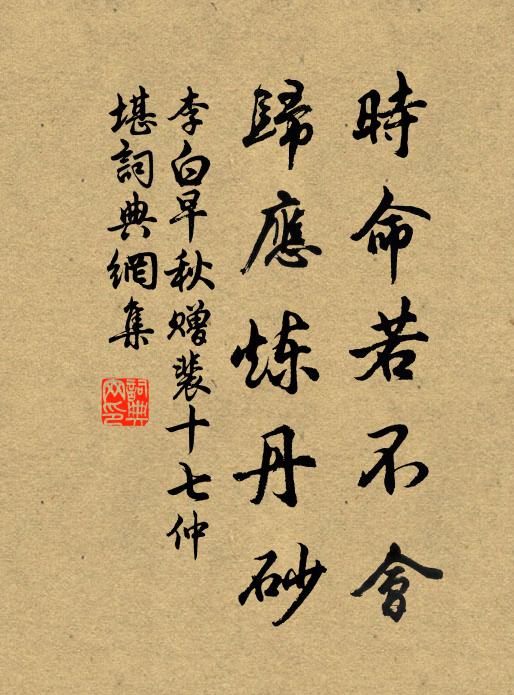 時命若不會
歸應炼丹砂
李白早秋赠裴十七仲
堪詞典網集
詞典
网印